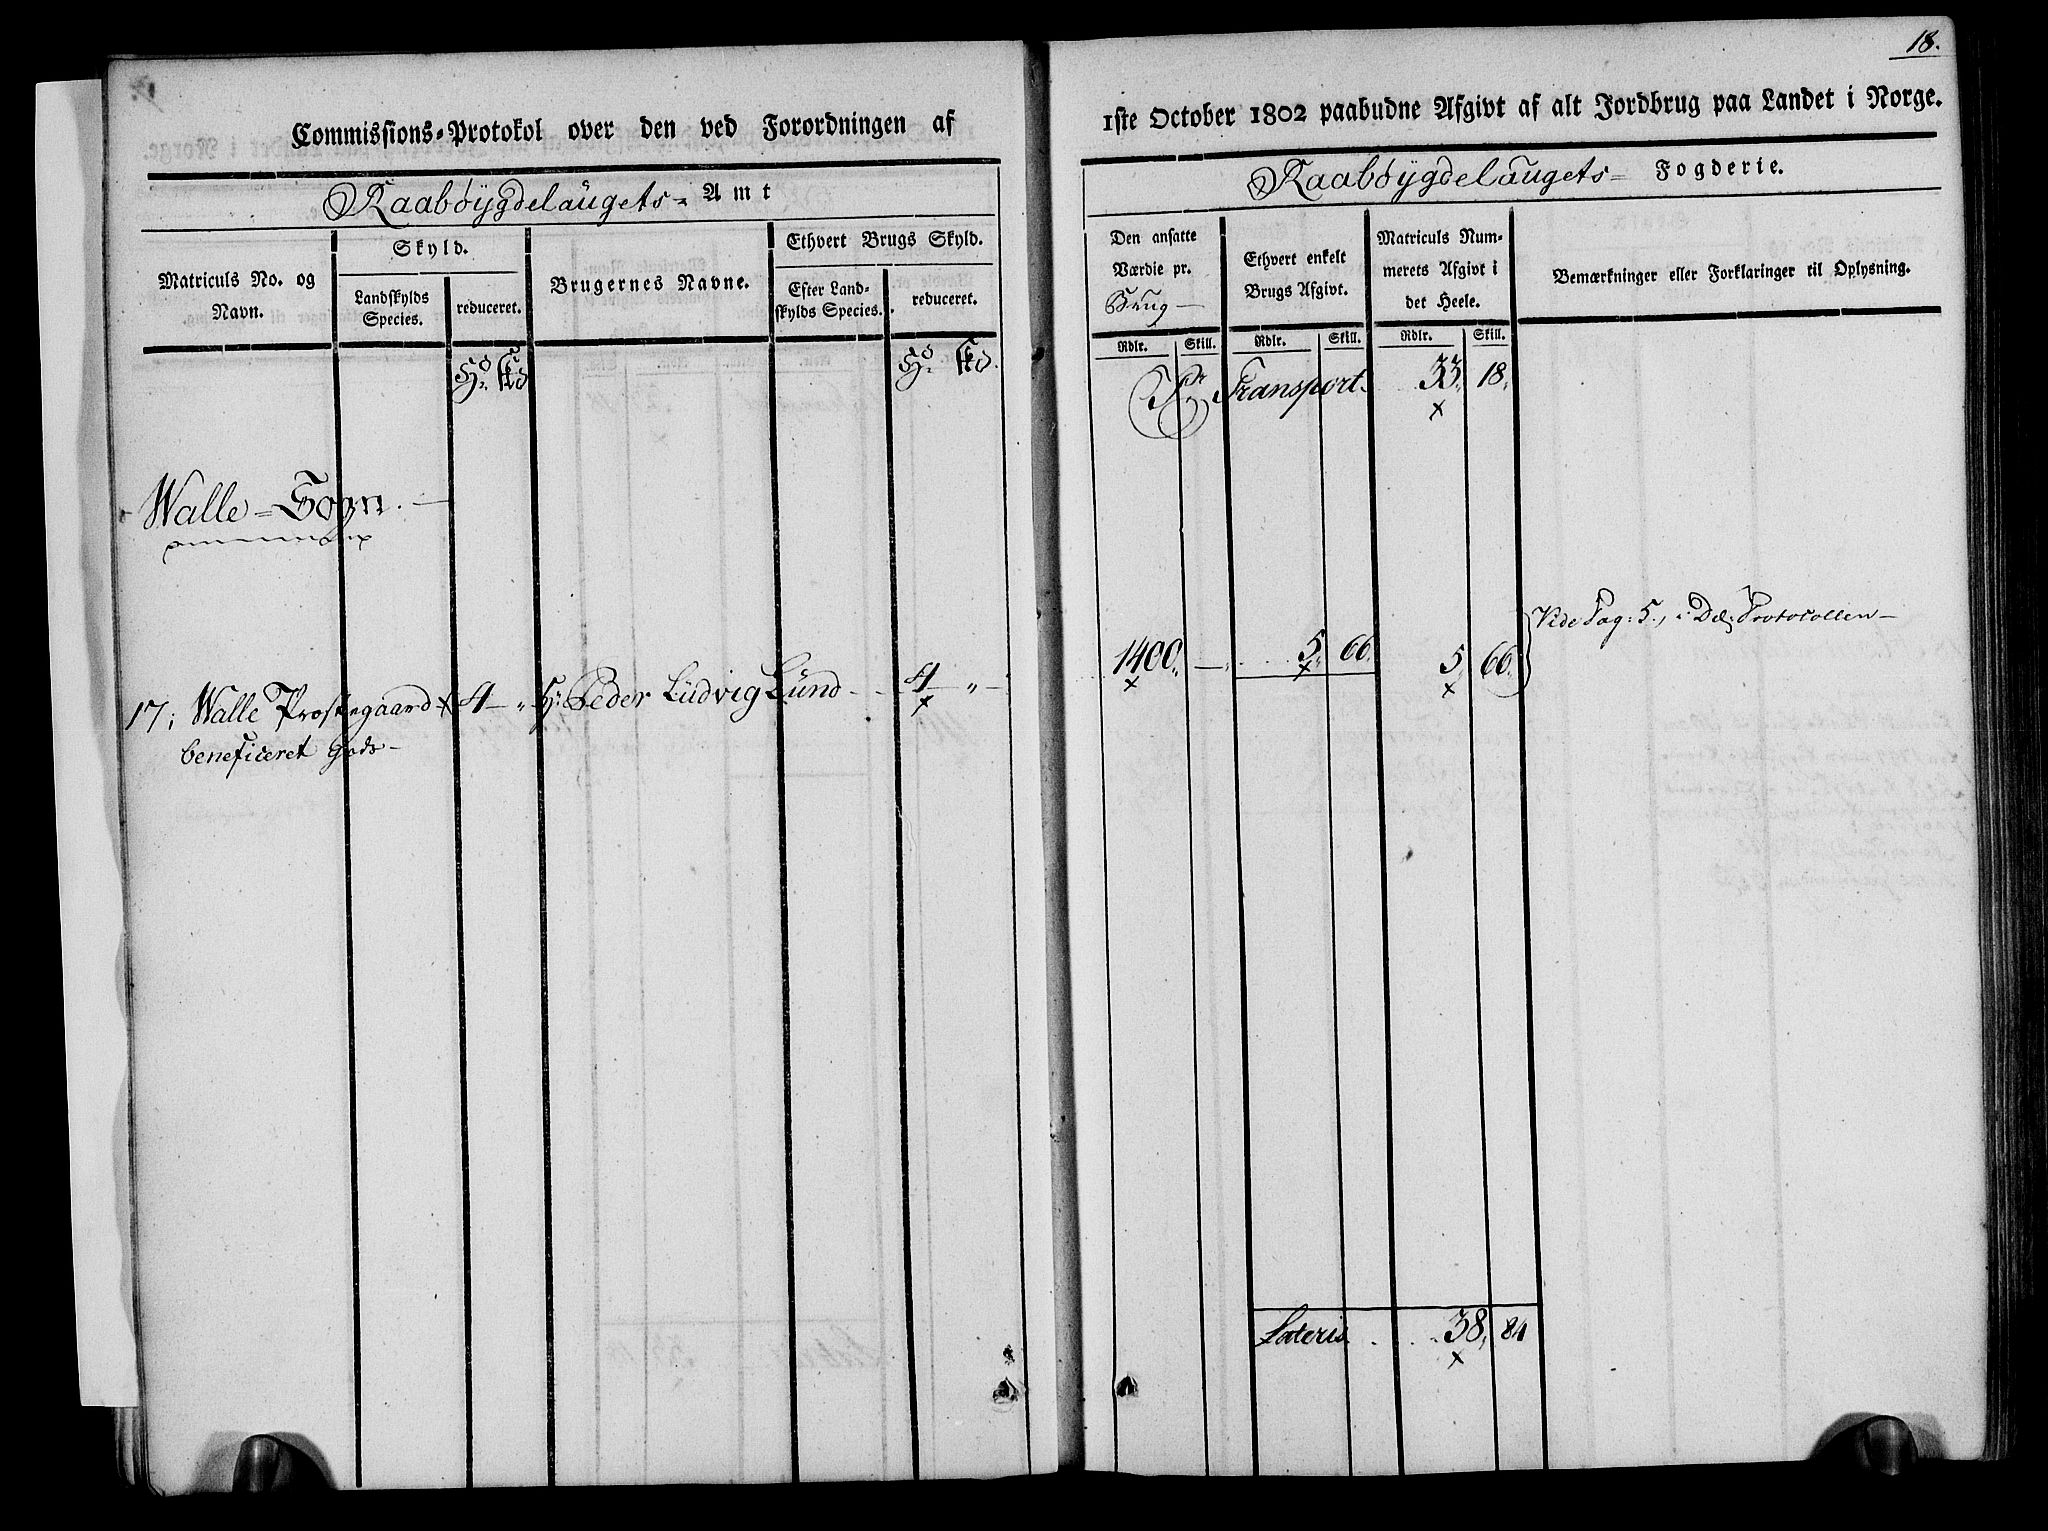 18.
Commissions-Protokol over den ved Forordningen af
1ste October 1802 paabudne Afgivt af alt Jordbrug paa Landet i Norge.
Raabøygdelaugets- Amt
Raabøygdelaugets- Fogderie.
Matriculs No. og
Navn.
Skyld.
Landskylds
Species.
reduceret.
Brugernes Navne.
Ethvert Brugs Skyld.
Efter Land-
skylds Species.
reduceret.
Den ansatte
Værdie pr.
Brug —
Ethvert enkelt
Brugs Afgivt.
Matriculs Num-
merets Afgivt i
det Heele.
Bemærkninger eller Forklaringer til Oplysning.
Rdlr. Skill. Rdlr. Skill. Rdlr. Skill.
Pr Transport. 33. 18.
Walle = Sogn. —
17; Walle Præstegaard 4 — „ Hr Peder Ludvig Lund - - 4 — „ —
beneficeret Gods —
1400. — „ 5. 66. 5. 66.
Vide Pag: 5., i Del: Protocollen —
Lateris . . . 38. 84